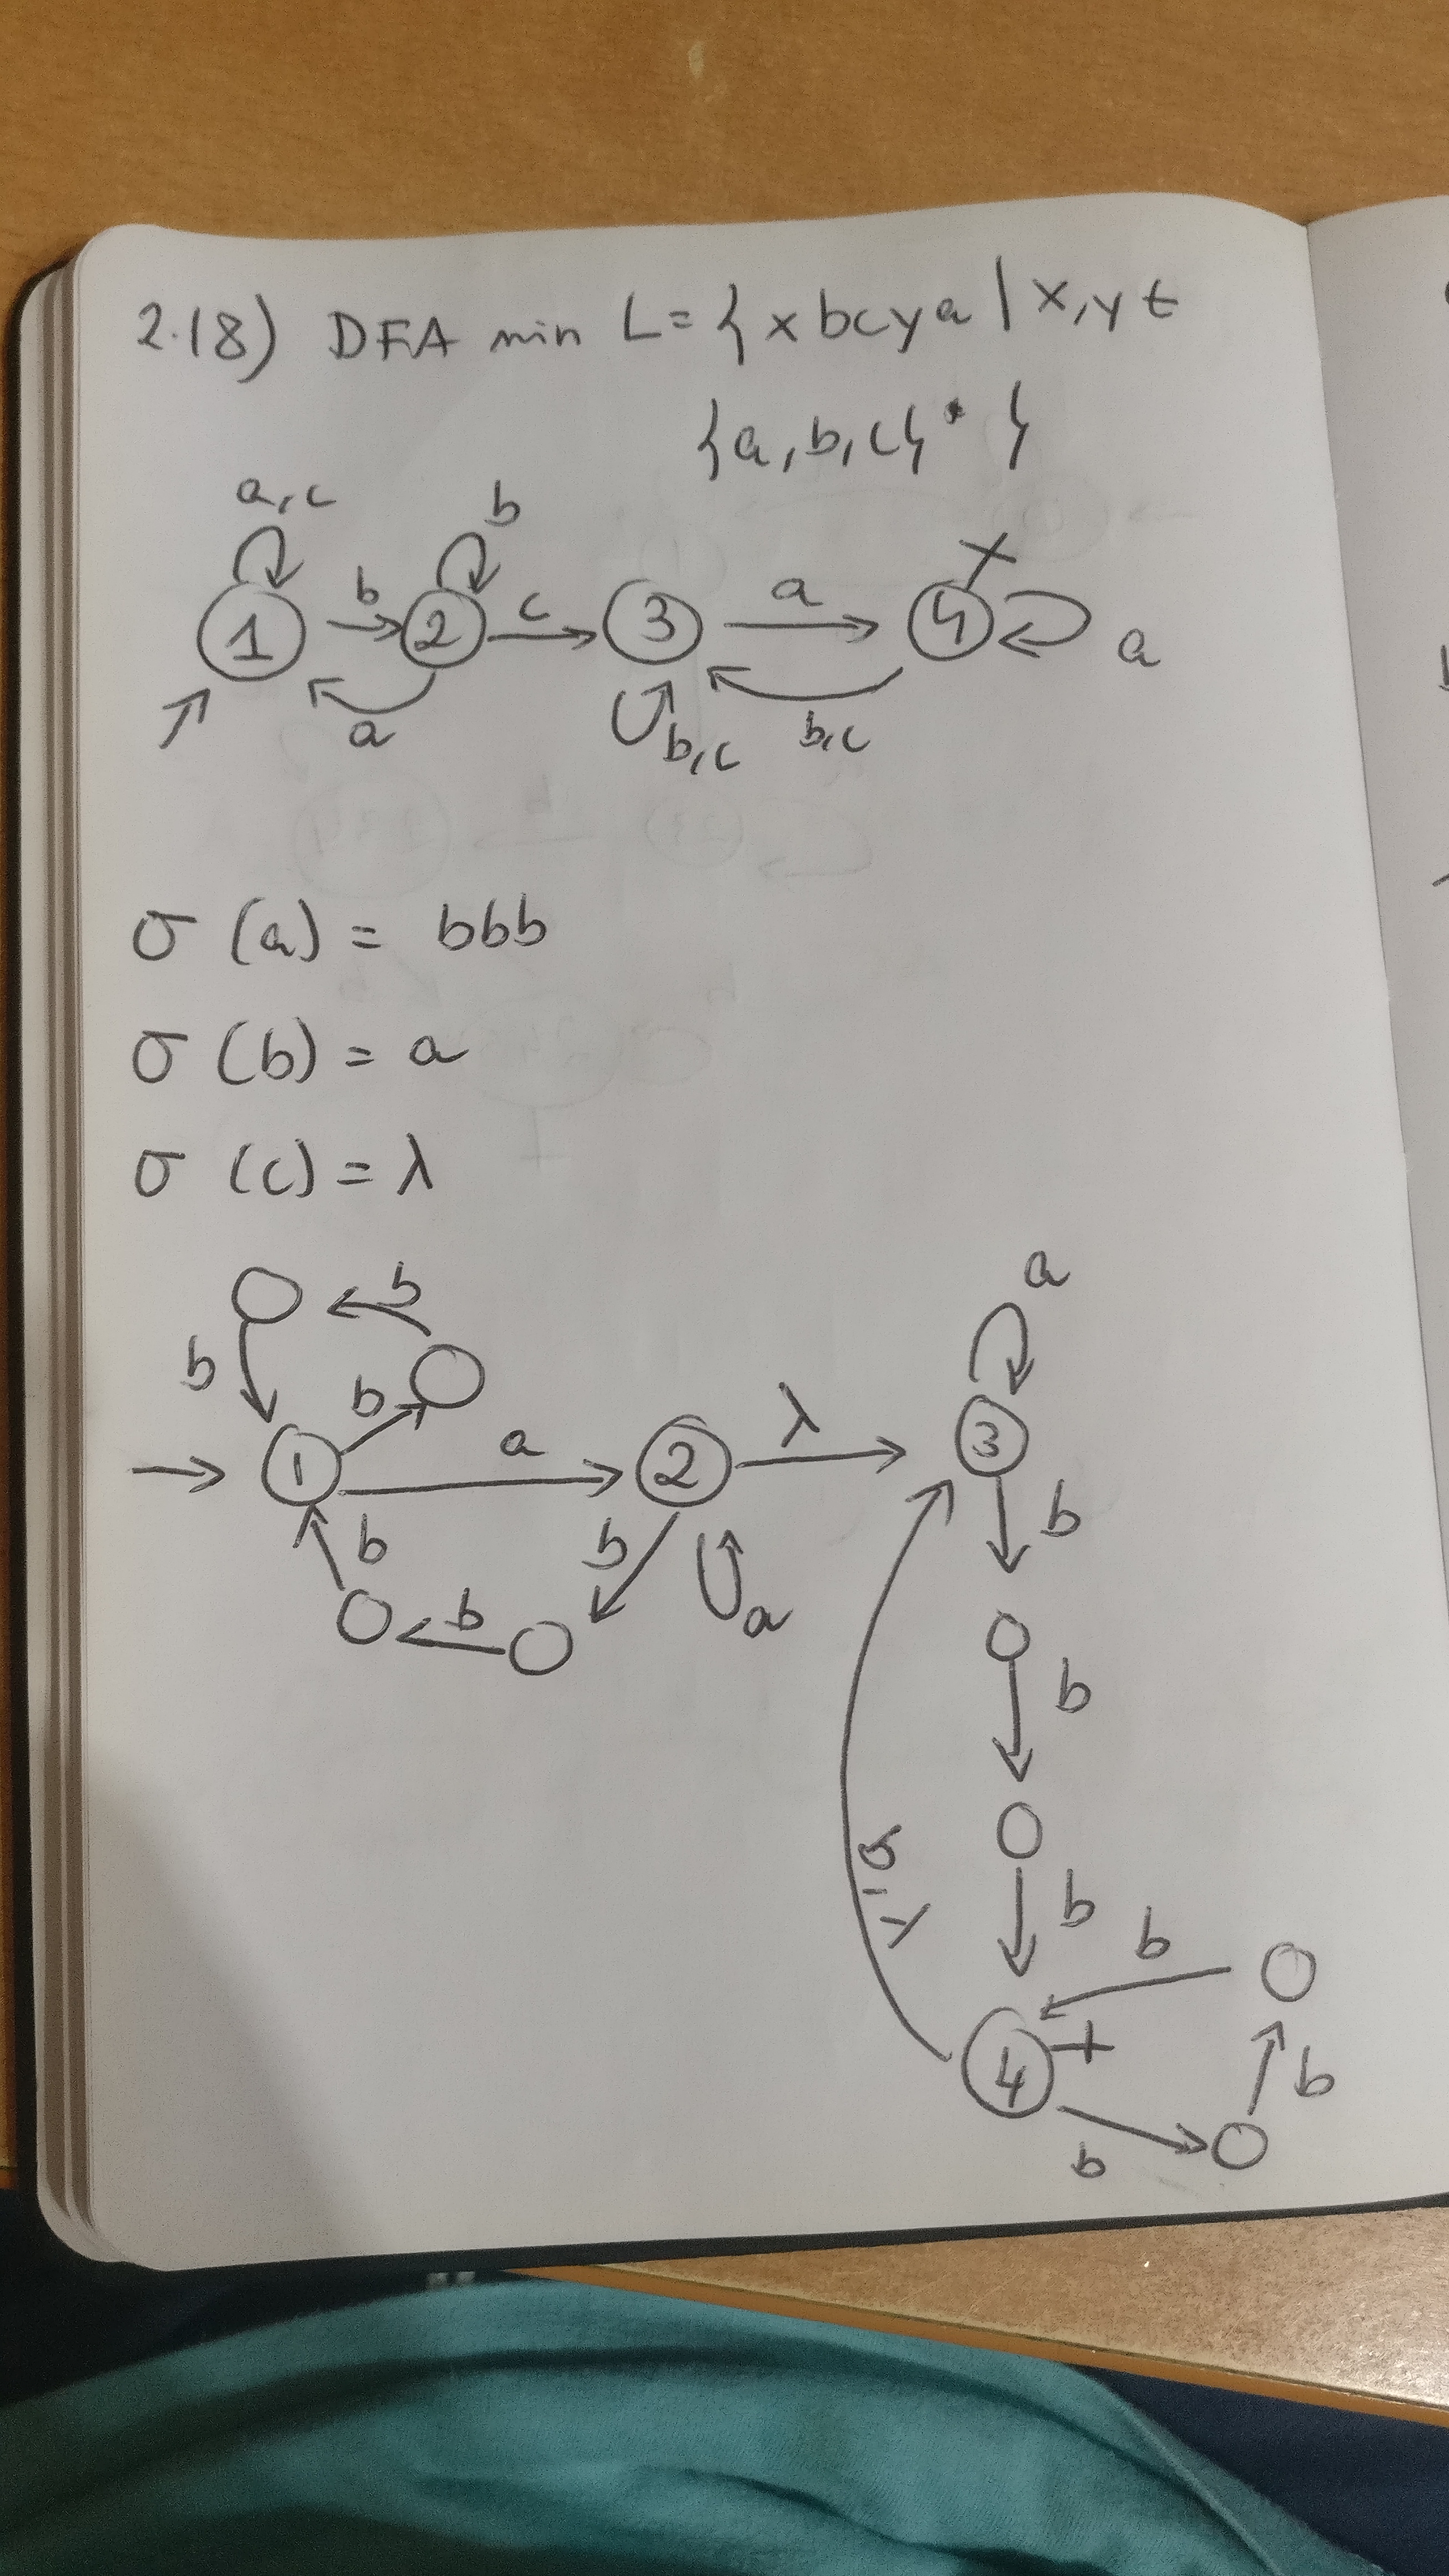 2.18) DFA min L = { x b c y a | x, y ∈
{a, b, c}* }
a, c b
b c a
1 2 3 4 a
a b, c b, c
σ (a) = bbb
σ (b) = a
σ (c) = λ
a
b
b b λ
3
1 a 2
b b b
b a
b
b
a, λ b
4 b
b